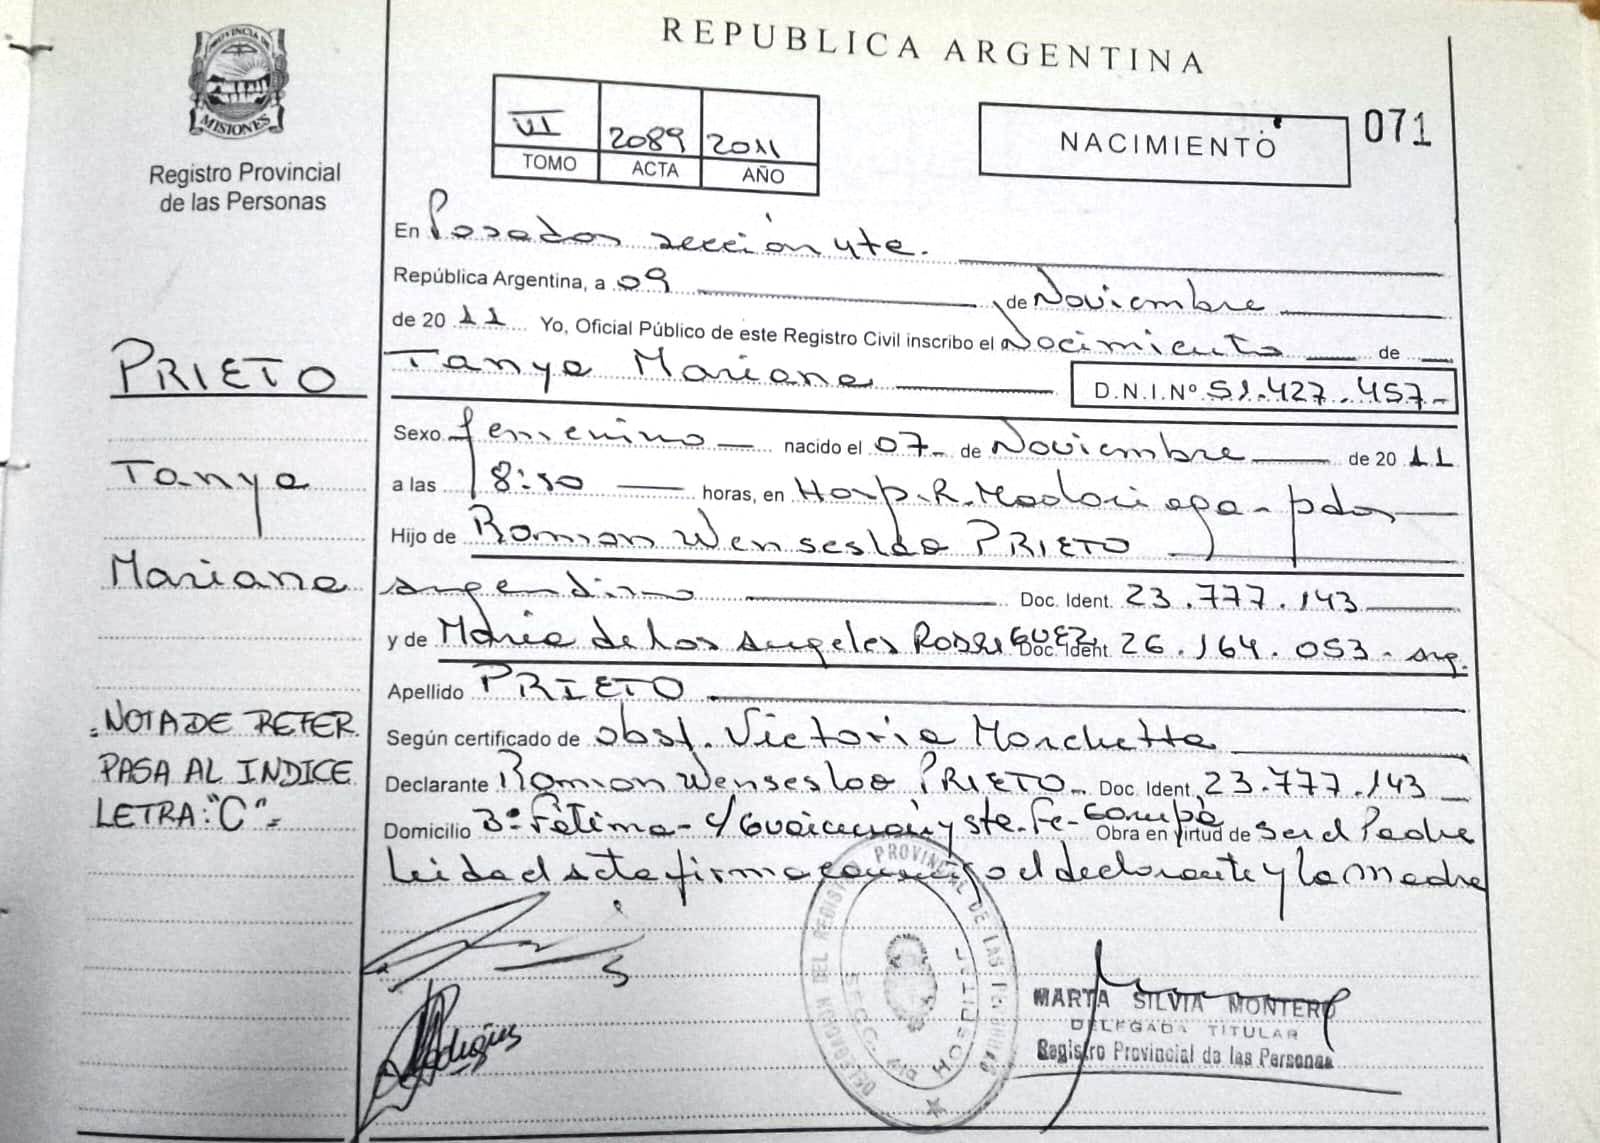 REPUBLICA ARGENTINA
PROVINCIA DE
MISIONES
Registro Provincial
de las Personas
VI 2089 2011
TOMO ACTA AÑO
NACIMIENTO
071
En Posadas sección 4te.
República Argentina, a 09 de Noviembre
de 2011 Yo, Oficial Público de este Registro Civil inscribo el Nacimiento de
Tanya Mariana D.N.I.Nº 51.427.457-
Sexo femenino nacido el 07- de Noviembre de 2011
a las 18:10 horas, en Hosp. R. Madariaga - pdas
Hijo de Roman Wenseslao PRIETO
argentino Doc. Ident. 23.777.143
y de Maria de los Angeles RODRIGUEZ Doc. Ident. 26.164.053 - arg.
Apellido PRIETO
Según certificado de obst. Victoria Marchetta
Declarante Roman Wenseslao PRIETO- Doc. Ident. 23.777.143
Domicilio Bº Fátima - c/ y Ste. Fe - Garupá Obra en virtud de ser el Padre
Leida el acta firma conmigo el declarante y la madre
PRIETO
Tanya
Mariana
=NOTA DE REFER.
PASA AL INDICE
LETRA: "C"=
Rodrigues
DELEGACION DEL REGISTRO PROVINCIAL DE LAS PERSONAS
SECC. 4ta HOSPITAL
MARTA SILVIA MONTERO
DELEGADA TITULAR
Registro Provincial de las Personas